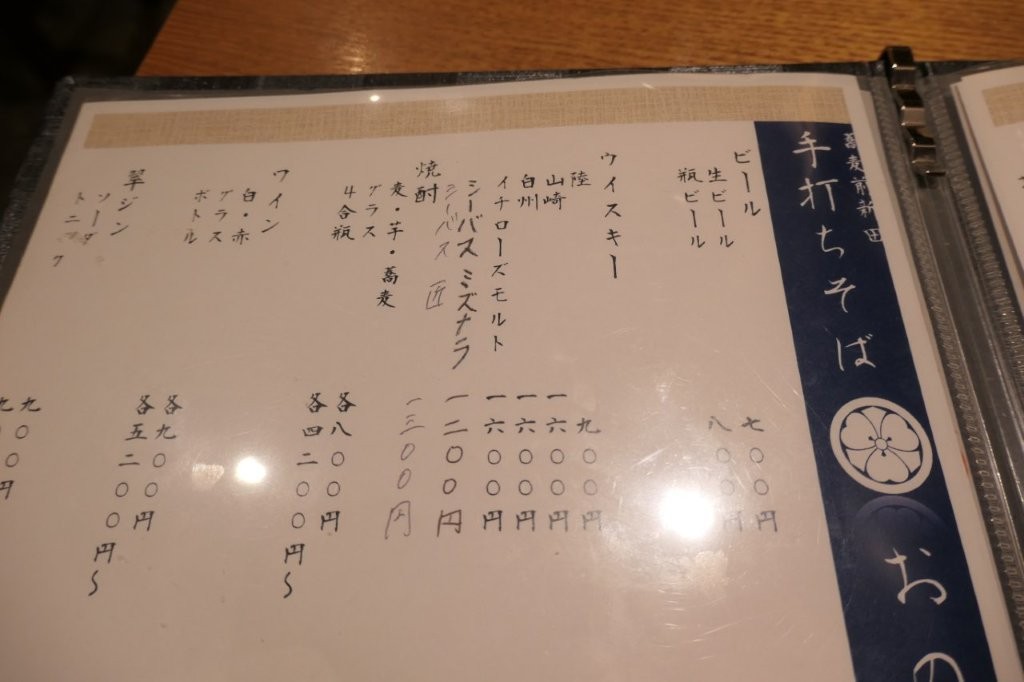 蕎麦前新田
手打ちそば おの
ビール
生ビール 七〇〇円
瓶ビール 八〇〇円
ウイスキー
陸 九〇〇円
山崎 一六〇〇円
白州 一六〇〇円
イチローズモルト 一六〇〇円
シーバスミズナラ 一二〇〇円
シーバス 匠 一三〇〇円
焼酎
麦・芋・蕎麦
グラス 各八〇〇円
4合瓶 各四二〇〇円〜
ワイン
白・赤
グラス 各九〇〇円
ボトル 各五二〇〇円〜
翠ジン
ソーダ 九〇〇円
トニック 九